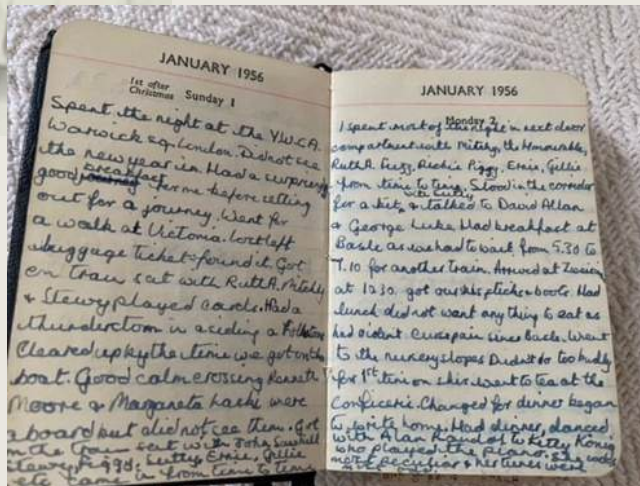 JANUARY 1956
1st after
Christmas Sunday 1
Spent the night at the Y.W.C.A.
Warwick sq. London. Did not see
the new year in. Had a surprising
breakfast
good for me before setting
out for a journey. Went for
a walk at Victoria. Lost left
luggage ticket & found it. Got
on train sat with Ruth A. Mitchy
& Stewy played cards. Had a
cleared up by the time we got on the
boat. Good calm crossing Kenneth
Moore & Margareta were
aboard but did not see them. Got
on the train sat with John
Stewy, Piggy, Sutty, Ernie, Gillie
etc came in from time to time
JANUARY 1956
Monday 2
I spent most of the night in next door
compartment with Mitchy, the Honourable,
Ruth A. Fuzz, Richie Piggy, Ernie, Gillie
from time to time. Stood in the corridor
with Sutty
for a bit, & talked to David Allan
& George Luke. Had breakfast at
Basle as we had to wait from 5.30 to
7.10 for another train. Arrived at
at 10.30. got our skis, sticks & boots. Had
lunch did not want any thing to eat as
had violent pain since Basle. Went
to the nursery slopes Didn't do too badly
for 1st time on skis. Went to tea at the
Confiserie. Changed for dinner began
to write home. Had dinner, danced
with Alan Randolf to Kitty König
who played the piano. She looks
most peculiar & her tunes were